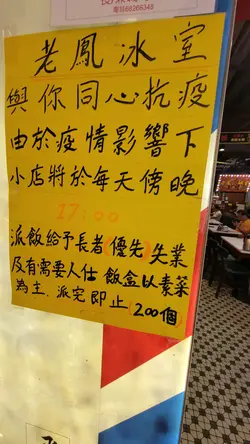 電話66266348
老鳳冰室
與你同心抗疫
由於疫情影響下
小店將於每天傍晚
17:00
派飯給予長者(優先)失業
及有需要人仕 飯盒以素菜
為主．派完即止(200個)